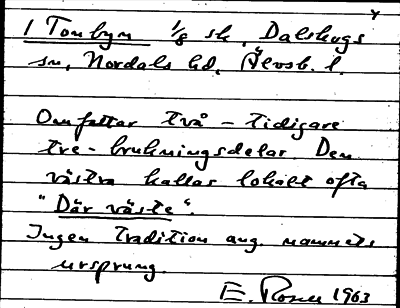 1 Tonbyn 1/8 sk, Dalskogs
sn, Nordals hd, Älvsb. l.
Omfattar två – tidigare
tre – brukningsdelar. Den
västra kallas lokalt ofta
"Där väste".
Ingen tradition ang. namnets
ursprung.
E. Rosen 1963